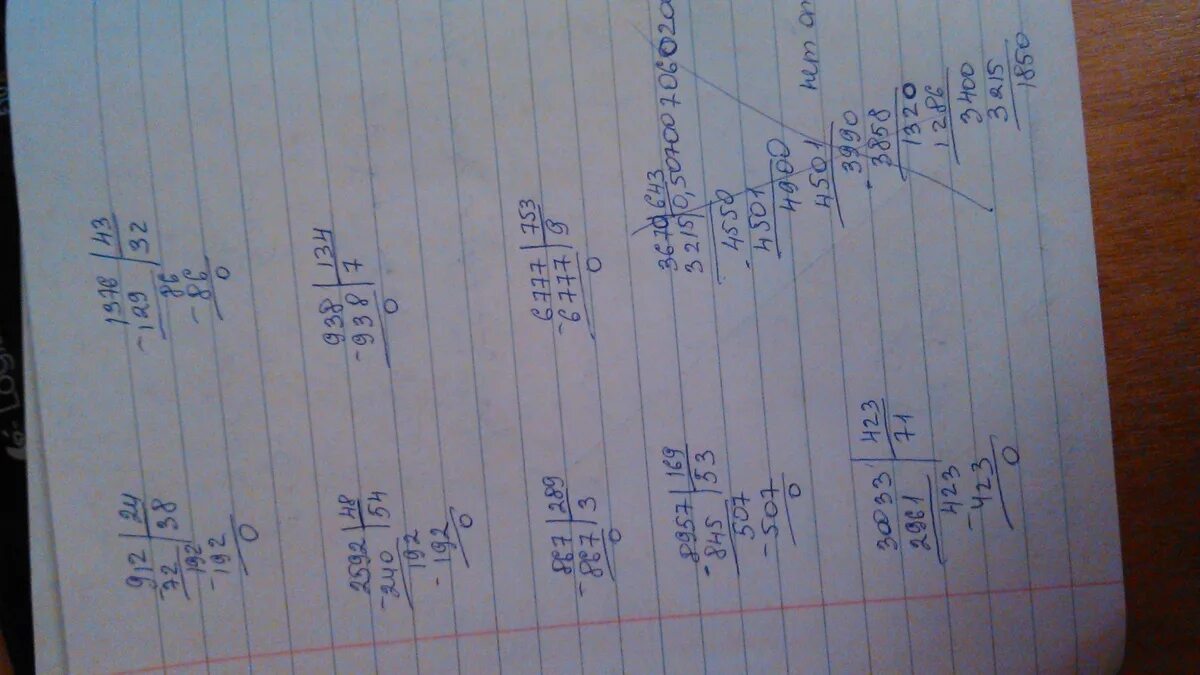 912 24
-72 38
192
-192
0
1376 43
-129 32
86
-86
0
2592 48
-240 54
192
-192
0
938 134
-938 7
0
867 289
-867 3
0
6777 753
-6777 9
0
8957 169
-845 53
507
-507
0
3670 643
3215 0,507007060200
-4550
-4501
4900
4501
-3990
3858
1320
1286
3400
3215
1850
нет
30033 423
2961 71
423
-423
0